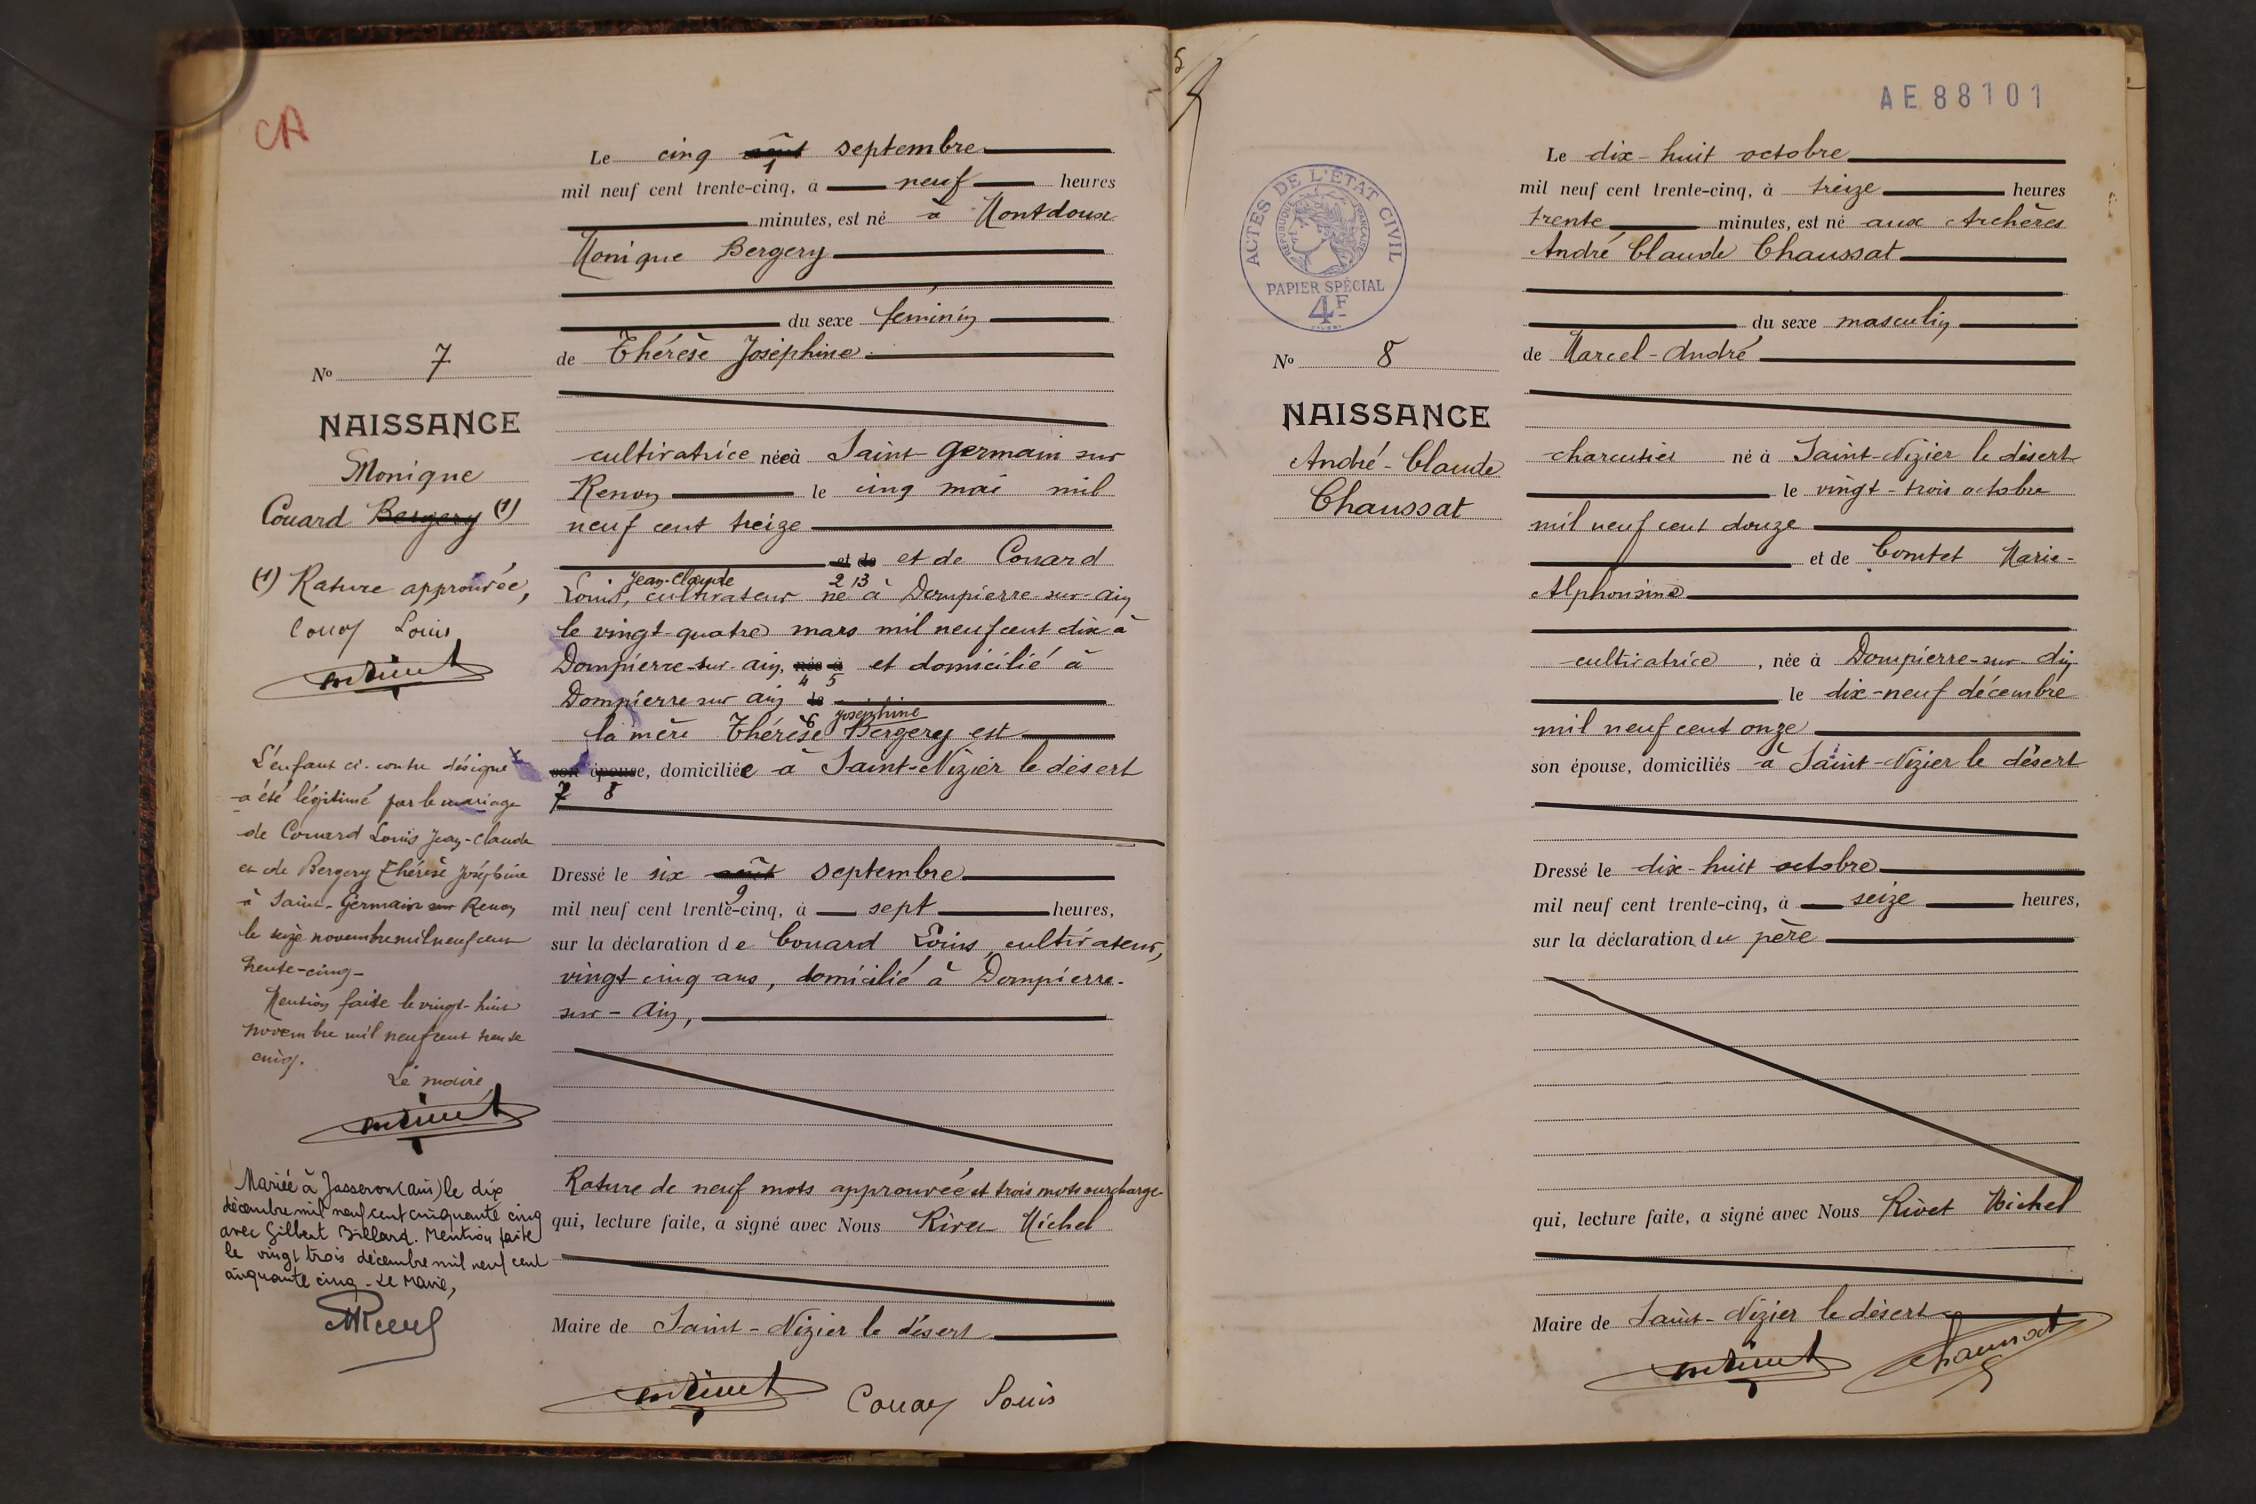 CA
Le cinq août septembre
mil neuf cent trente-cinq, à neuf heures
minutes, est né à Montdoux
Monique Bergery
du sexe féminin
de Thérèse Joséphine
No 7
NAISSANCE
Monique
Couard Bergery (1)
(1) Rature approuvée,
Couard Louis
cultivatrice née à Saint germain sur
Renon le cinq mai mil
neuf cent treize
et de et de Couard
Jean-Claude 2 13
Louis, cultivateur né à Dompierre-sur-ain
le vingt-quatre mars mil neuf cent dix à
Dompierre-sur-ain, née à et domicilié à
4 5
Dompierre sur ain
6 Joséphine
la mère Thérèse Bergery est
son épouse, domiciliée à Saint-Nizier le désert
7 8
L'enfant ci-contre désigné
a été légitimé par le mariage
de Couard Louis Jean-Claude
et de Bergery Thérèse Joséphine
à Saint-Germain sur Renon
le seize novembre mil neuf cent
trente-cinq-
Mention faite le vingt-huit
novembre mil neuf cent trente
cinq.
Le maire
Mariée à Jasseron (ain) le dix
décembre mil neuf cent cinquante cinq
avec Gilbert Billard. Mention faite
le vingt trois décembre mil neuf cent
cinquante cinq - Le Maire,
Dressé le six août septembre
9
mil neuf cent trente-cinq, à sept heures,
sur la déclaration de Couard Louis, cultivateur,
vingt-cinq ans, domicilié à Dompierre-
sur-Ain,
Rature de neuf mots approuvée et trois mots surchargé
qui, lecture faite, a signé avec Nous Rivet Michel
Maire de Saint-Nizier le désert
Couard Louis
5
AE88101
ACTES DE L'ÉTAT CIVIL
RÉPUBLIQUE FRANÇAISE
PAPIER SPÉCIAL
4F
Le dix-huit octobre
mil neuf cent trente-cinq, à treize heures
trente minutes, est né aux Archères
André Claude Chaussat
du sexe masculin
de Marcel-André
No 8
NAISSANCE
André-Claude
Chaussat
charcutier né à Saint-Nizier le désert
le vingt-trois octobre
mil neuf cent douze
et de Comtet Marie-
Alphonsine
cultivatrice, née à Dompierre-sur-Ain
le dix-neuf décembre
mil neuf cent onze
son épouse, domiciliés à Saint-Nizier le désert
Dressé le dix-huit octobre
mil neuf cent trente-cinq, à seize heures,
sur la déclaration du père
qui, lecture faite, a signé avec Nous Rivet Michel
Maire de Saint-Nizier le désert
Chaussat